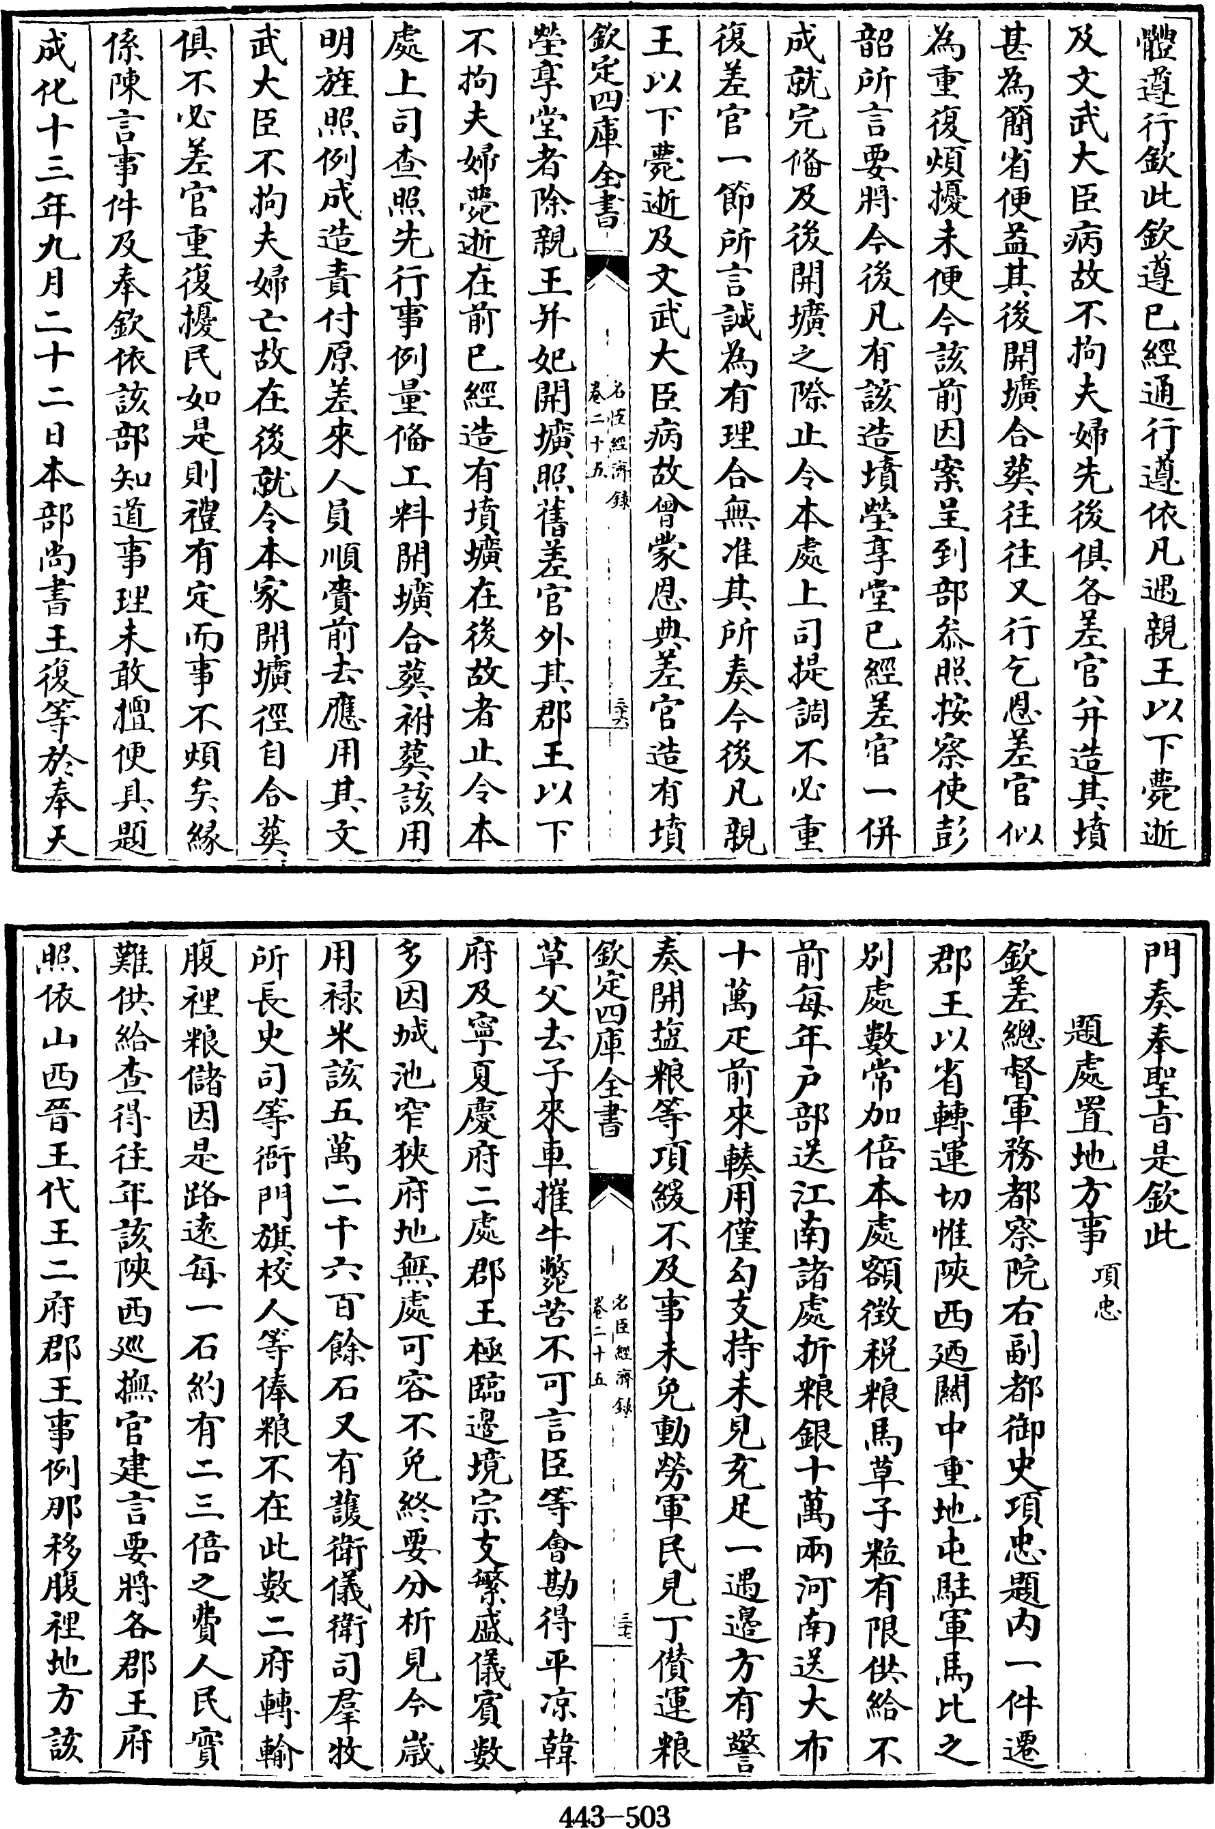 體遵行欽此欽遵已經通行遵依凡遇親王以下薨逝
及文武大臣病故不拘夫婦先後俱各差官幷造其墳
甚為簡省便益其後開壙合葬往往又行乞恩差官似
為重復煩擾未便今該前因案呈到部叅照按察使彭
韶所言要將今後凡有該造墳塋享堂已經差官一併
成就完俻及後開壙之際止令本處上司提調不必重
復差官一節所言誠為有理合無准其所奏今後凡親
王以下薨逝及文武大臣病故曾蒙恩典差官造有墳
欽定四庫全書
名臣經濟録
卷二十五
三六
塋享堂者除親王并妃開壙照舊差官外其郡王以下
不拘夫婦薨逝在前已經造有墳壙在後故者止令本
處上司查照先行事例量俻工料開壙合葬祔葬該用
明旌照例成造責付原差來人員順賫前去應用其文
武大臣不拘夫婦亡故在後就令本家開壙徑自合葬
俱不必差官重復擾民如是則禮有定而事不煩矣緣
係陳言事件及奉欽依該部知道事理未敢擅便具題
成化十三年九月二十二日本部尚書王復等於奉天
門奏奉聖旨是欽此
題處置地方事 項忠
欽差總督軍務都察院右副都御史項忠題內一件遷
郡王以省轉運切惟陝西廼關中重地屯駐軍馬比之
別處數常加倍本處額徴稅粮馬草子粒有限供給不
前每年戶部送江南諸處折粮銀十萬兩河南送大布
十萬疋前來輳用僅勾支持未見充足一遇邊方有警
奏開鹽粮等項緩不及事未免動勞軍民見丁儧運粮
欽定四庫全書
名臣經濟録
卷二十五
三七
草父去子來車摧牛斃苦不可言臣等會勘得平凉韓
府及寧夏慶府二處郡王極臨邊境宗支繁盛儀賓數
多因城池窄狹府地無處可容不免終要分析見今歲
用禄米該五萬二千六百餘石又有護衛儀衛司羣牧
所長史司等衙門旗校人等俸粮不在此數二府轉輸
腹裡粮儲因是路逺每一石約有二三倍之費人民實
難供給查得往年該陝西廵撫官建言要將各郡王府
照依山西晉王代王二府郡王事例那移腹裡地方該
443-503